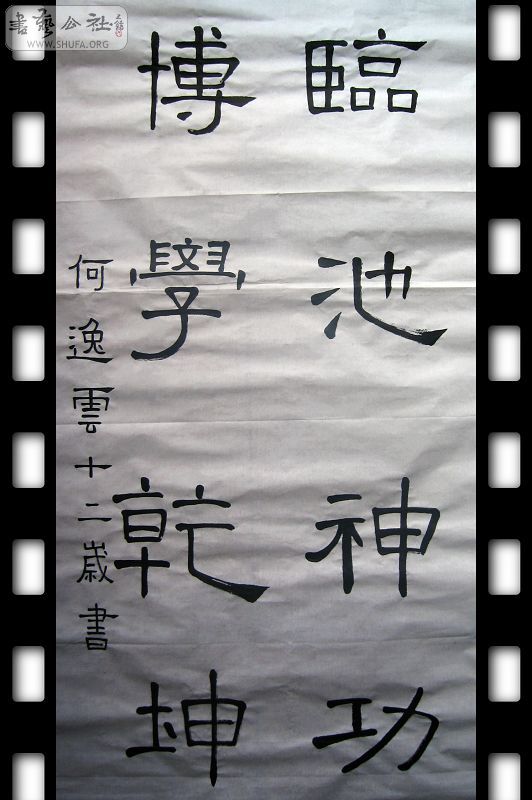 臨池神功
博學乾坤
何逸雲十二歲書
書藝公社
WWW.SHUFA.ORG